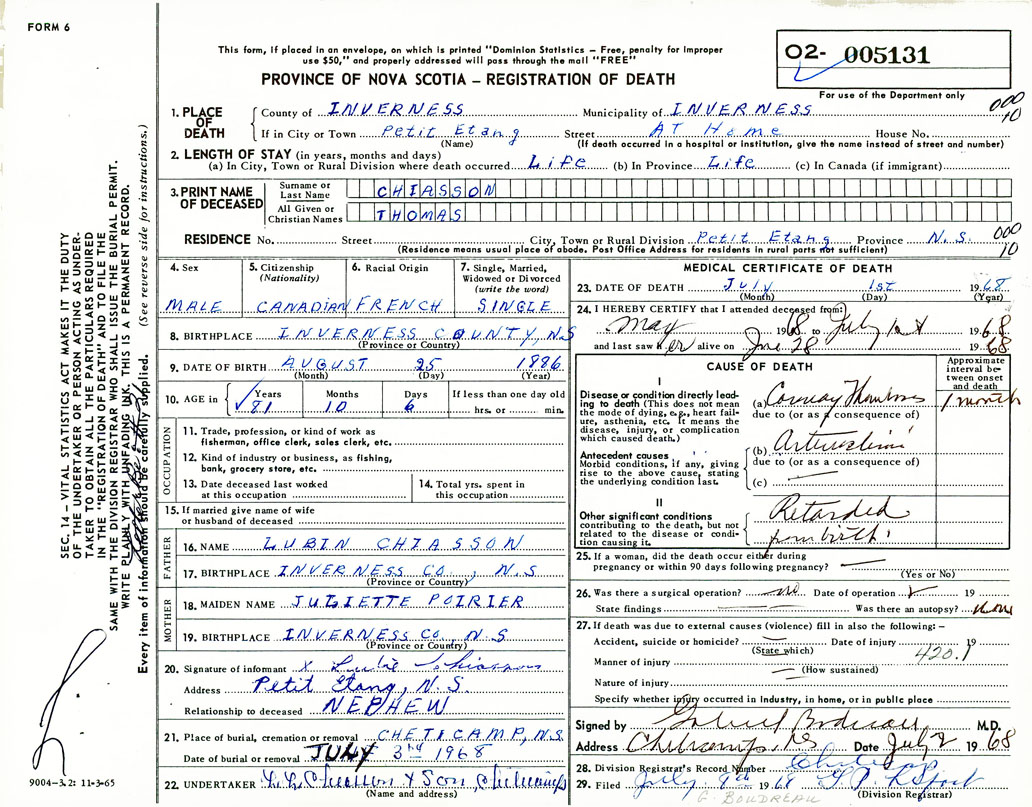 FORM 6
This form, if placed in an envelope, on which is printed "Dominion Statistics – Free, penalty for improper
use $50," and properly addressed will pass through the mail "FREE"
PROVINCE OF NOVA SCOTIA – REGISTRATION OF DEATH
02- 005131
For use of the Department only
000
10
1. PLACE OF DEATH
County of INVERNESS Municipality of INVERNESS
If in City or Town Petit Etang Street AT Home House No.
(Name) (If death occurred in a hospital or institution, give the name instead of street and number)
2. LENGTH OF STAY (in years, months and days)
(a) In City, Town or Rural Division where death occurred Life (b) In Province Life (c) In Canada (if immigrant)
3. PRINT NAME OF DECEASED
Surname or Last Name CHIASSON
All Given or Christian Names THOMAS
RESIDENCE No. Street City, Town or Rural Division Petit Etang Province N.S.
(Residence means usual place of abode. Post Office Address for residents in rural parts not sufficient)
000
10
4. Sex MALE
5. Citizenship (Nationality) CANADIAN
6. Racial Origin FRENCH
7. Single, Married, Widowed or Divorced (write the word) SINGLE
8. BIRTHPLACE INVERNESS COUNTY, N.S
(Province or Country)
9. DATE OF BIRTH AUGUST 25 1886
(Month) (Day) (Year)
10. AGE in Years 81 Months 10 Days 6 If less than one day old hrs. or min.
OCCUPATION
11. Trade, profession, or kind of work as
fisherman, office clerk, sales clerk, etc.
12. Kind of industry or business, as fishing,
bank, grocery store, etc.
13. Date deceased last worked
at this occupation
14. Total yrs. spent in
this occupation
15. If married give name of wife
or husband of deceased
FATHER
16. NAME LUBIN CHIASSON
17. BIRTHPLACE INVERNESS CO., N.S
(Province or Country)
MOTHER
18. MAIDEN NAME JULIETTE POIRIER
19. BIRTHPLACE INVERNESS Co., N.S
(Province or Country)
20. Signature of informant X Lubie Chiasson
Address Petit Etang, N.S.
Relationship to deceased NEPHEW
21. Place of burial, cremation or removal CHETICAMP, N.S.
Date of burial or removal JULY 3rd 1968
22. UNDERTAKER & Son, Cheticamp
(Name and address)
MEDICAL CERTIFICATE OF DEATH
23. DATE OF DEATH July 1st 1968
(Month) (Day) (Year)
24. I HEREBY CERTIFY that I attended deceased from:
May 1968 to July 1st 1968
and last saw h er alive on June 28 1968
CAUSE OF DEATH
Approximate interval between onset and death
I
Disease or condition directly leading to death (This does not mean the mode of dying, e.g., heart failure, asthenia, etc. It means the disease, injury, or complication which caused death.)
(a) Coronary Thrombosis 1 month
due to (or as a consequence of)
Antecedent causes
Morbid conditions, if any, giving rise to the above cause, stating the underlying condition last.
(b)
due to (or as a consequence of)
(c)
II
Other significant conditions contributing to the death, but not related to the disease or condition causing it.
Retarded
from birth
25. If a woman, did the death occur either during
pregnancy or within 90 days following pregnancy?
(Yes or No)
26. Was there a surgical operation? no Date of operation 19
State findings Was there an autopsy? none
27. If death was due to external causes (violence) fill in also the following: –
Accident, suicide or homicide? Date of injury 19
(State which)
420.1
Manner of injury
(How sustained)
Nature of injury
Specify whether injury occurred in Industry, in home, or in public place
Signed by Gabriel Boudreau M.D.
Address Cheticamp, NS Date July 2 1968
28. Division Registrar's Record Number Cheticamp
29. Filed July 8th 1968
(Division Registrar)
G. BOUDREAU
SEC. 14 – VITAL STATISTICS ACT MAKES IT THE DUTY
OF THE UNDERTAKER OR PERSON ACTING AS UNDERTAKER TO OBTAIN ALL THE PARTICULARS REQUIRED
IN THE "REGISTRATION OF DEATH" AND TO FILE THE
SAME WITH THE DIVISION REGISTRAR WHO SHALL ISSUE THE BURIAL PERMIT.
WRITE PLAINLY WITH UNFADING INK, THIS IS A PERMANENT RECORD.
Every item of information should be carefully supplied. (See reverse side for instructions.)
9004-3.2: 11-3-65